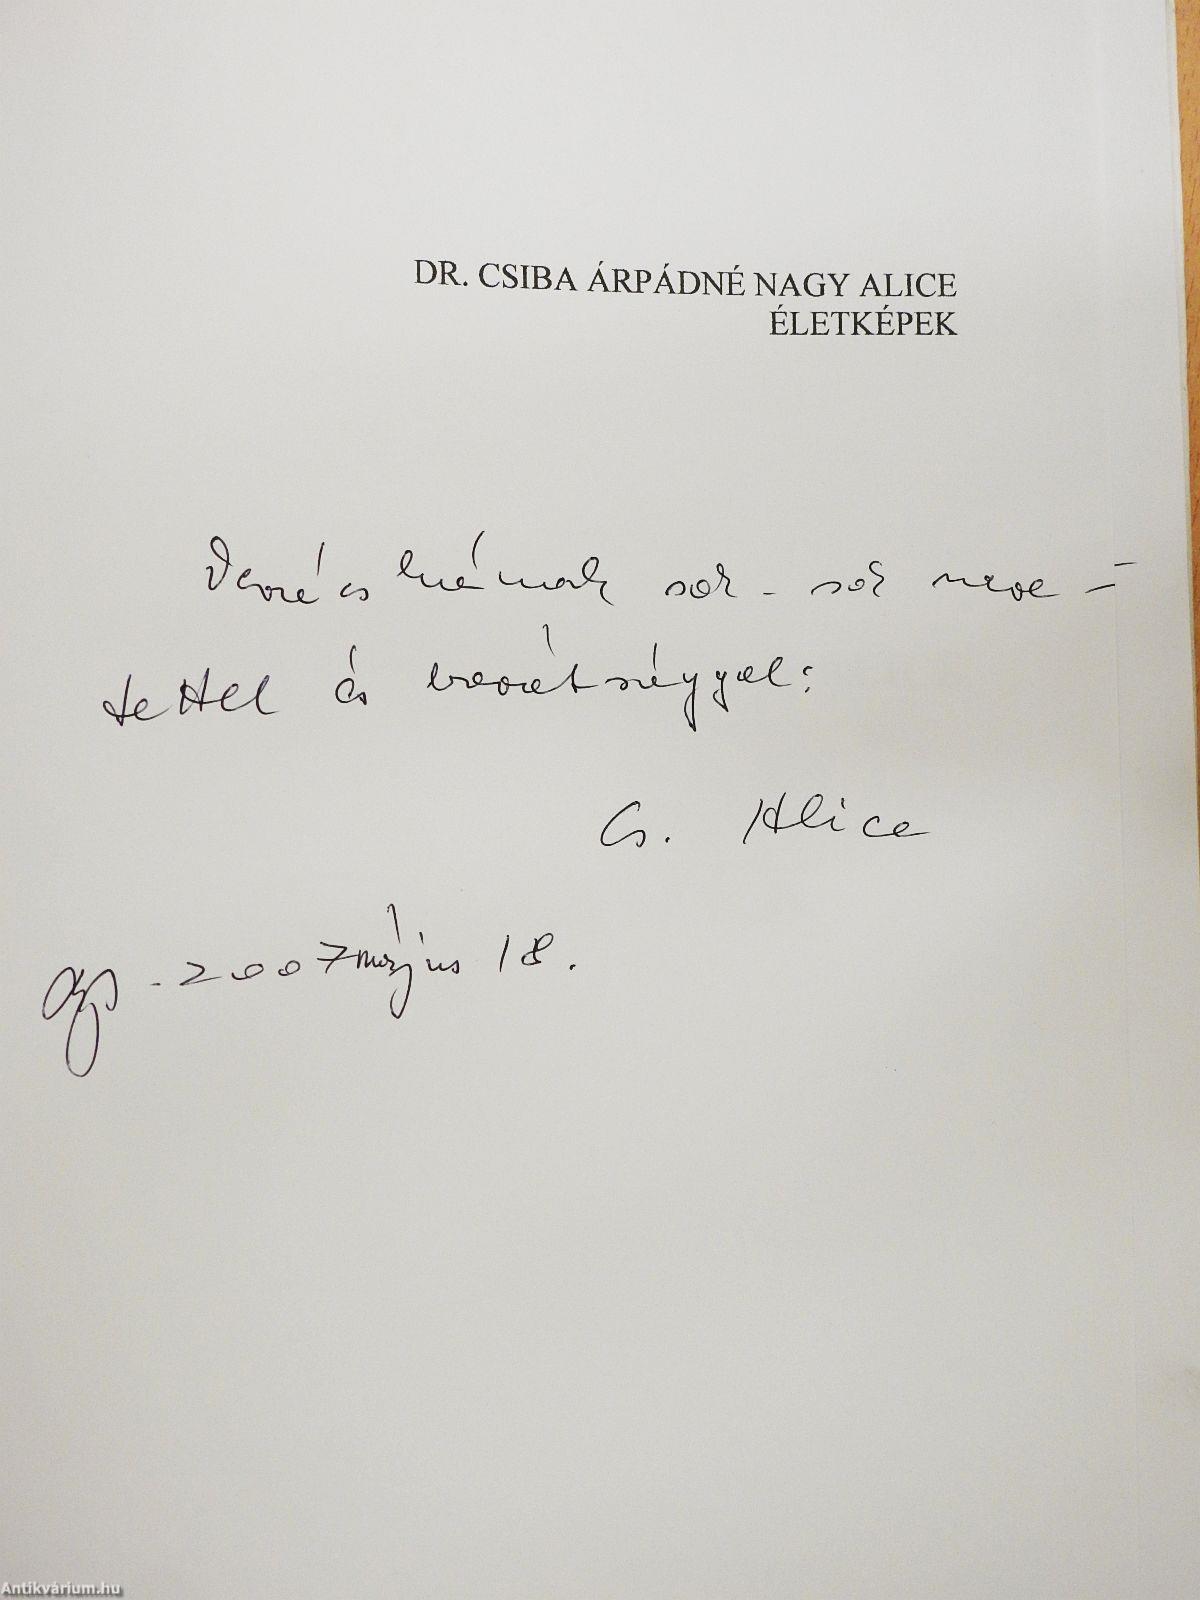 DR. CSIBA ÁRPÁDNÉ NAGY ALICE
ÉLETKÉPEK
sok - sok szere =
tettel és barátsággal:
Cs. Alice
2007 május 18.
Antikvárium.hu